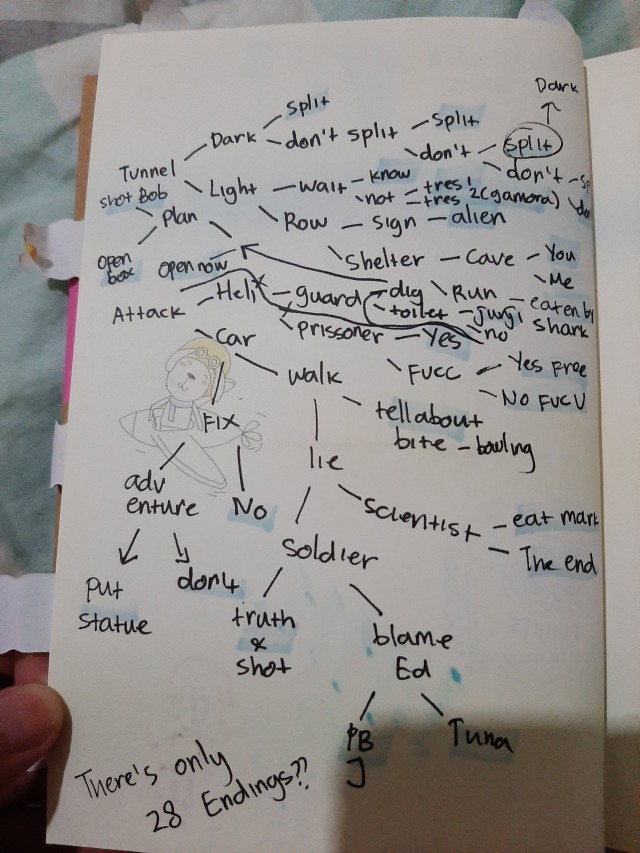 Dark
split
Dark
don't split
split
don't
split
don't
Tunnel
shot Bob
Light
wait
know
not
tres 1
tres 2(gamora)
Plan
Row
sign
alien
open
box
open now
shelter
cave
You
Me
Attack
Heli
guard
dig
Run
eaten by
shark
toilet
no
prissoner
Yes
Car
FUCC
Yes Free
No FUCU
walk
FIX
tell about
bite - bowling
lie
adv
enture
No
scientist
eat mark
The end
soldier
Put
statue
don't
truth
&
shot
blame
Ed
PB
J
Tuna
There's only
28 Endings??